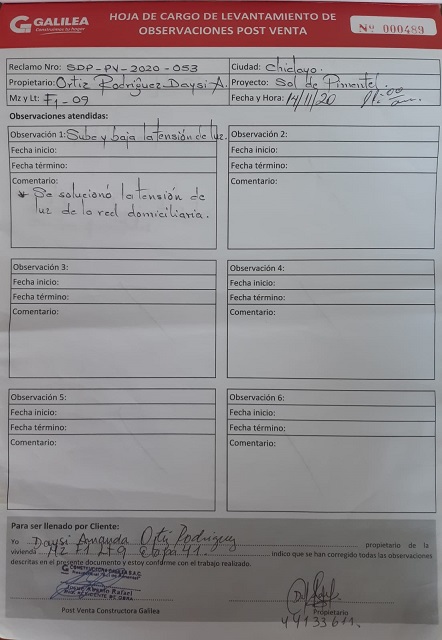 GALILEA
Construimos tu hogar
HOJA DE CARGO DE LEVANTAMIENTO DE
OBSERVACIONES POST VENTA
Nº 000489
Reclamo Nro: SDP-PV-2020-053 Ciudad: Chiclayo.
Propietario: Ortiz Rodríguez Daysi A. Proyecto: Sol de Pimentel.
Mz y Lt: F1-09 Fecha y Hora: 14/11/20 11:00 am.
Observaciones atendidas:
Observación 1: Sube y baja la tensión de luz.
Fecha inicio:
Fecha término:
Comentario:
* Se solucionó la tensión de
luz de la red domiciliaria.
Observación 2:
Fecha inicio:
Fecha término:
Comentario:
Observación 3:
Fecha inicio:
Fecha término:
Comentario:
Observación 4:
Fecha inicio:
Fecha término:
Comentario:
Observación 5:
Fecha inicio:
Fecha término:
Comentario:
Observación 6:
Fecha inicio:
Fecha término:
Comentario:
Para ser llenado por Cliente:
Yo Daysi Amanda Ortiz Rodriguez propietario de la
vivienda Mz F1 Lt 9 Etapa indico que se han corregido todas las observaciones
descritas en el presente documento y estoy conforme con el trabajo realizado.
CONSTRUCTORA GALILEA S.A.C.
Post Venta Constructora Galilea
Propietario
44133611.